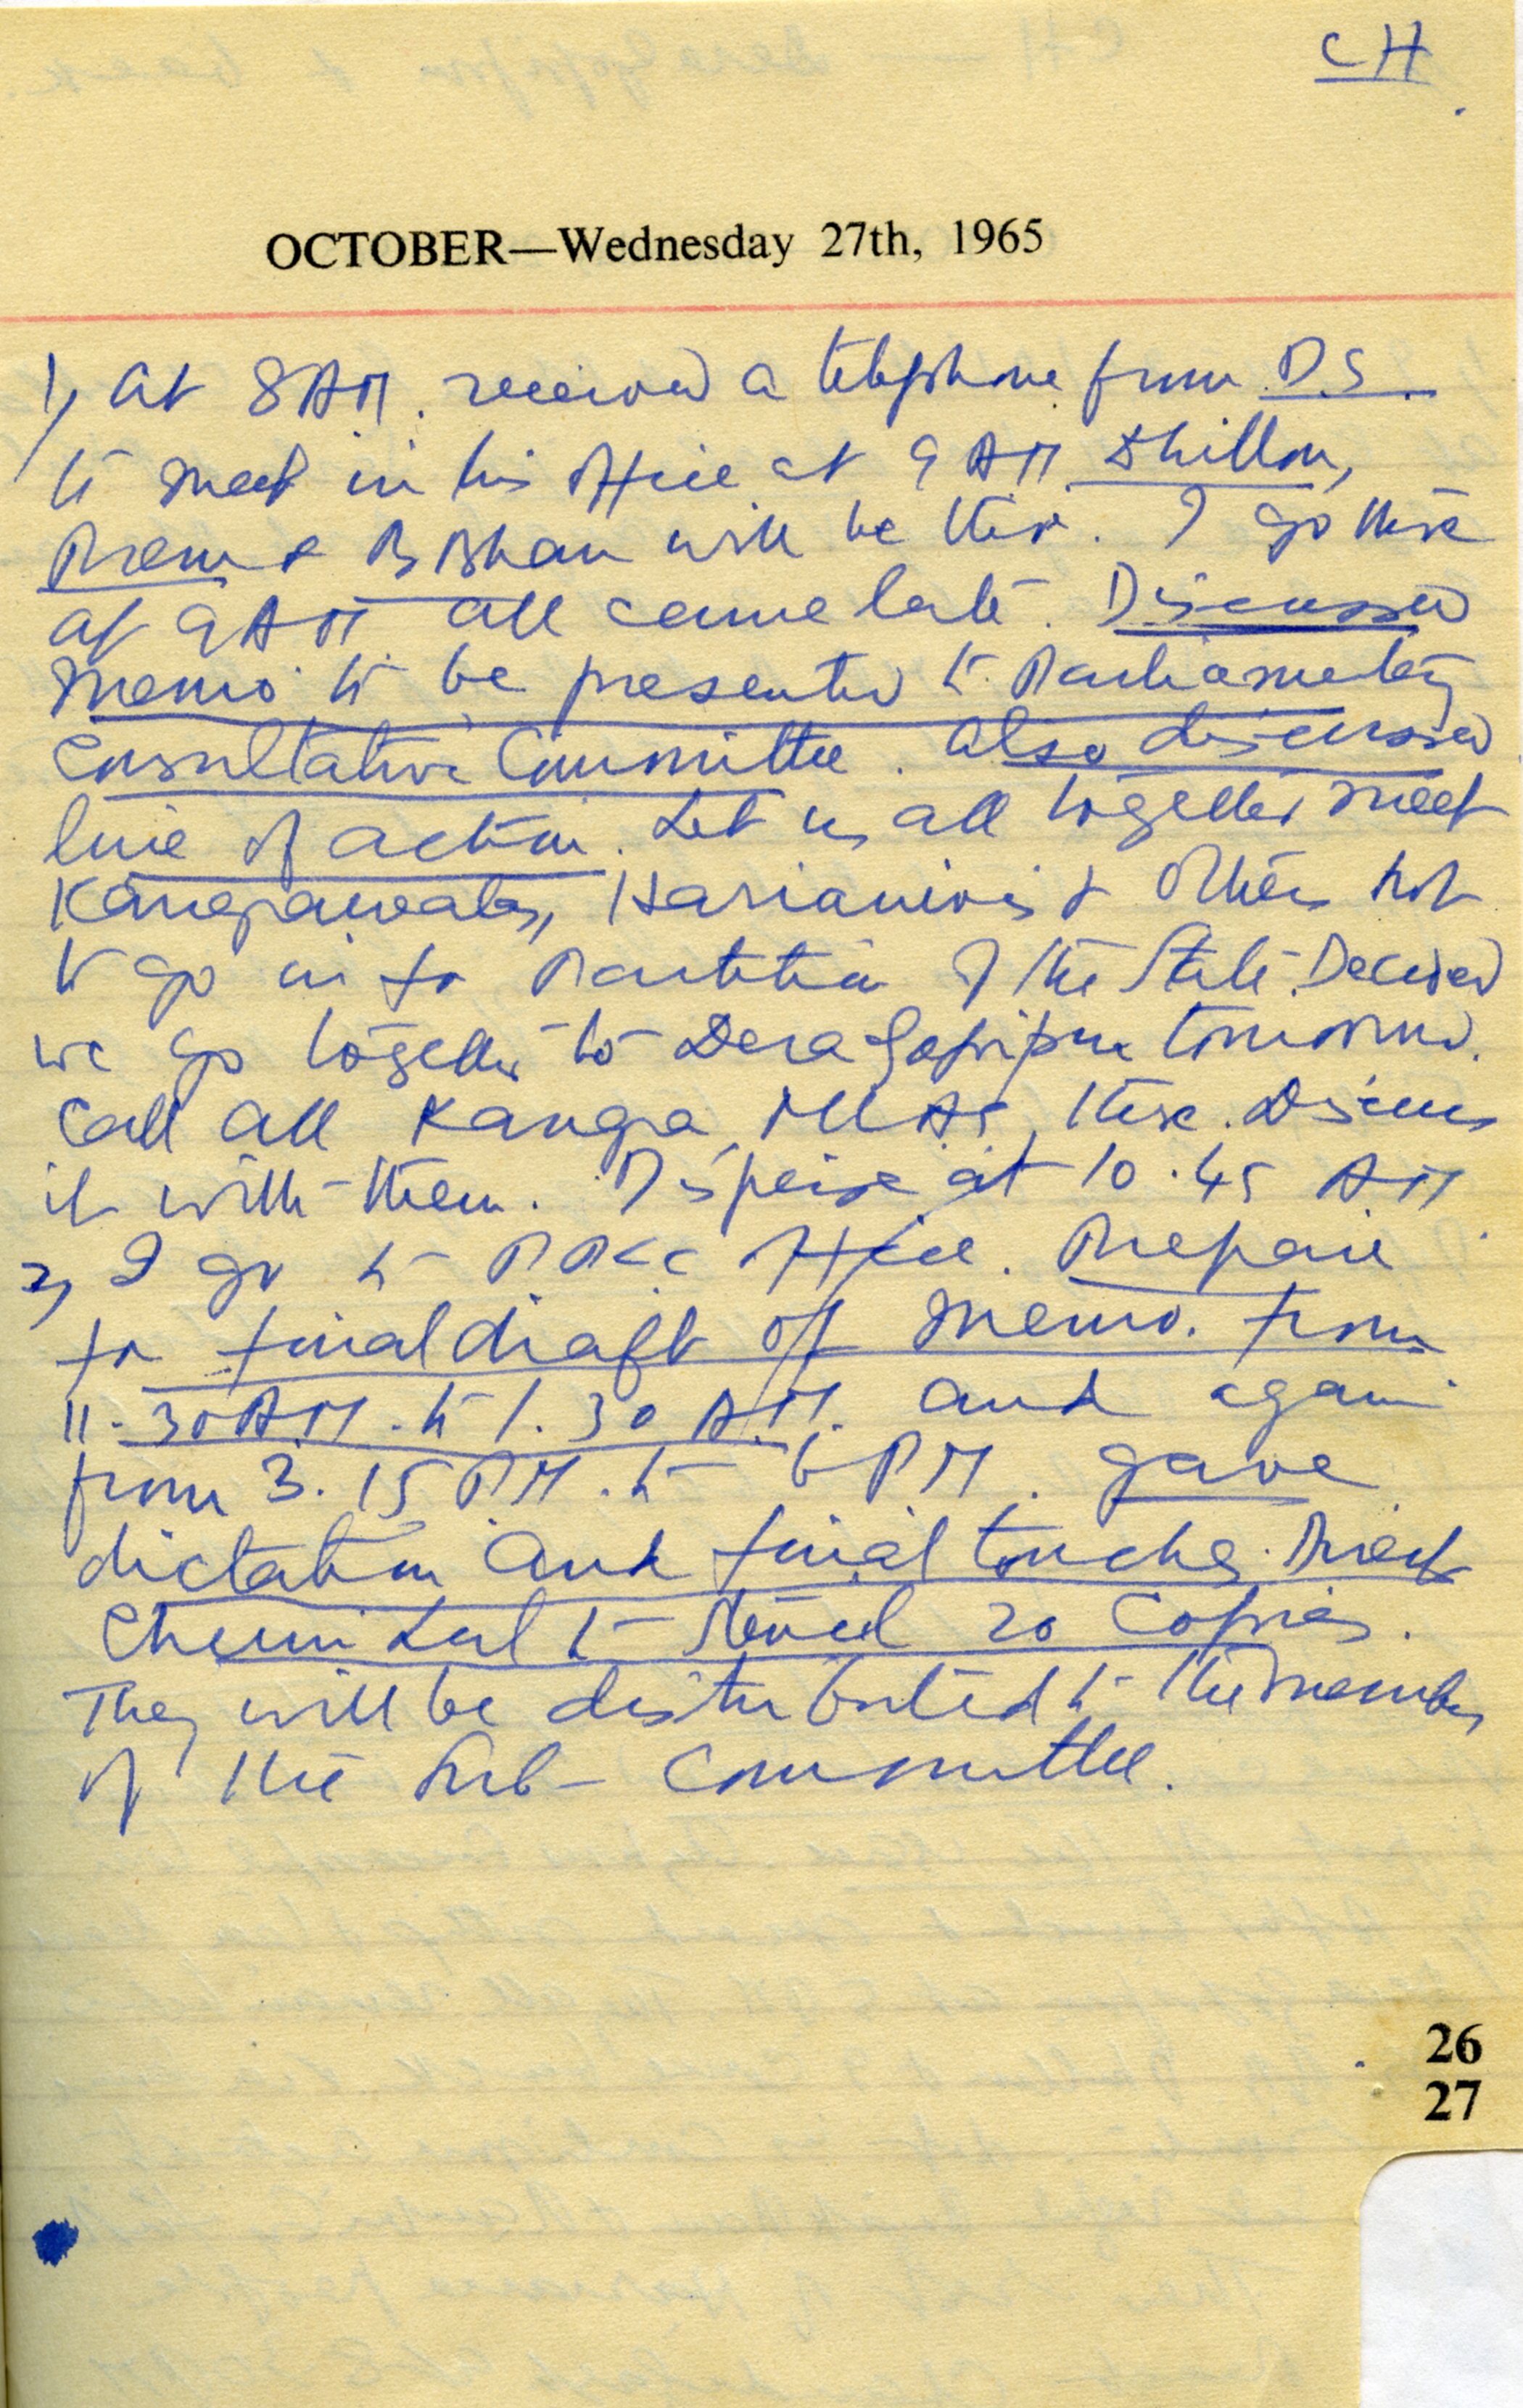 CH
OCTOBER—Wednesday 27th, 1965
1, at 8 AM. received a telephone from D.S.
to meet in his office at 9 AM Dhillon,
Prem & B Bhan will be there. I go there
at 9 AM all came late. Discussed
memo to be presented to Parliamentary
Consultative Committee. Also discussed
line of action. Let us all together meet
Kangrawalas, Harianvis & others not
to go in for Partition of the State. Decided
we go together to Dera Gopipur tomorrow.
Call all Kangra MLAs there. Discuss
it with them. Disperse at 10.45 AM
2, I go to PPCC office. Prepare
for final draft of memo. from
11.30 AM. to 1.30 A.M. and again
from 3.15 PM. to 6 PM. gave
dictation and final touches.
Chuni Lal to stencil 20 copies.
They will be distributed to the members
of the Sub-Committee.
26
27